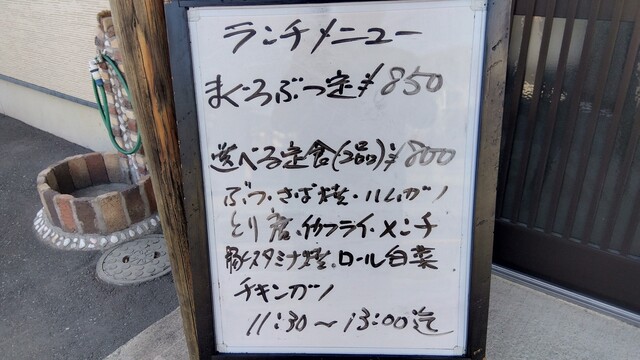 ランチメニュー
まぐろぶつ定¥850
選べる定食(2品)¥800
ぶつ・さば焼・ハムカツ
とり唐・イカフライ・メンチ
豚スタミナ焼・ロール白菜
チキンカツ
11:30〜13:00迄